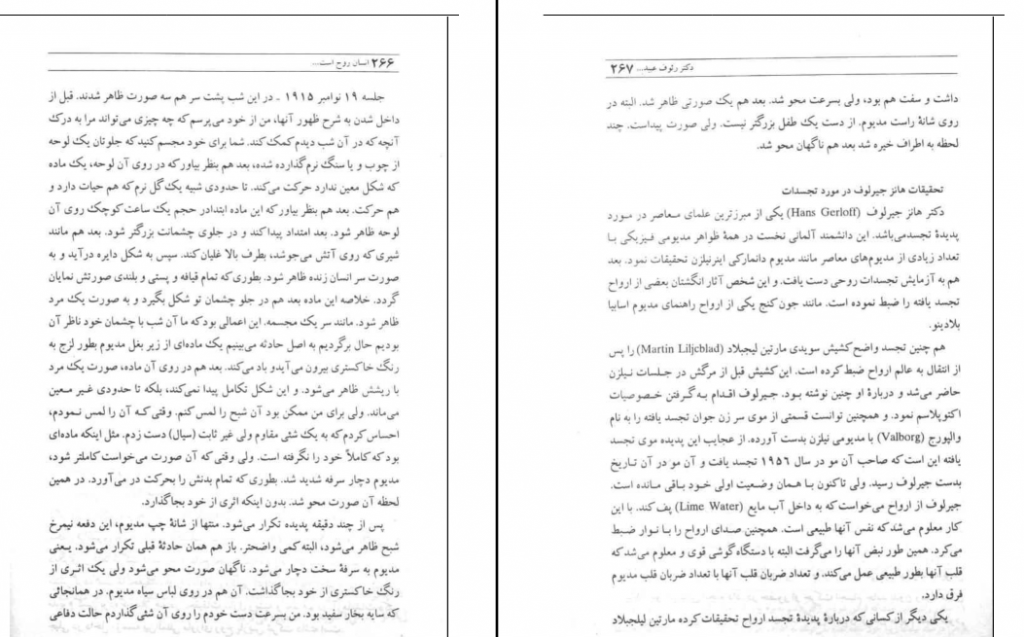 ۲۶۶ انسان روح است...
جلسه ۱۹ نوامبر ۱۹۱۵ ـ در این شب پشت سر هم سه صورت ظاهر شدند. قبل از
داخل شدن به شرح ظهور آنها، من از خود می‌پرسم که چه چیزی می‌تواند مرا به درک
آنچه که در آن شب دیدم کمک کند. شما برای خود مجسم کنید که جلوتان یک لوحه
از چوب و یا سنگ نرم گذارده شده، بعد هم بنظر بیاور که در روی آن لوحه، یک ماده
که شکل معین ندارد حرکت می‌کند. تا حدودی شبیه یک گل نرم که هم حیات دارد و
هم حرکت. بعد هم بنظر بیاور که این ماده ابتدا در حجم یک ساعت کوچک روی آن
لوحه ظاهر شود. بعد امتداد پیدا کند و در جلوی چشمانت بزرگتر شود. بعد هم مانند
شیری که روی آتش می‌جوشد، بطرف بالا غلیان کند. سپس به شکل دایره درآید و به
صورت سر انسان زنده ظاهر شود. بطوری که تمام قیافه و پستی و بلندی صورتش نمایان
گردد. خلاصه این ماده بعد هم در جلو چشمان تو شکل بگیرد و به صورت یک مرد
ظاهر شود. مانند سر یک مجسمه. این اعمالی بود که ما آن شب با چشمان خود ناظر آن
بودیم حال برگردیم به اصل حادثه می‌بینیم یک ماده‌ای از زیر بغل مدیوم بطور لزج به
رنگ خاکستری بیرون می‌آید و باد می‌کند. بعد هم در روی آن ماده، صورت یک مرد
با ریشش ظاهر می‌شود. و این شکل تکامل پیدا نمی‌کند، بلکه تا حدودی غیر معین
می‌ماند. ولی برای من ممکن بود آن شبح را لمس کنم. وقتی که آن را لمس نمودم،
احساس کردم که به یک شئی مقاوم ولی غیر ثابت (سیال) دست زدم. مثل اینکه ماده‌ای
بود که کاملاً خود را نگرفته است. ولی وقتی که آن صورت می‌خواست کاملتر شود،
مدیوم دچار سرفه شدید شد. بطوری که تمام بدنش را بحرکت در می‌آورد. در همین
لحظه آن صورت محو شد. بدون اینکه اثری از خود بجا گذارد.
پس از چند دقیقه پدیده تکرار می‌شود. منتها از شانهٔ چپ مدیوم، این دفعه نیمرخ
شبح ظاهر می‌شود، البته کمی واضحتر. باز هم همان حادثهٔ قبلی تکرار می‌شود. یعنی
مدیوم به سرفهٔ سخت دچار می‌شود. ناگهان صورت محو می‌شود ولی یک اثری از
رنگ خاکستری از خود بجا گذاشت. آن هم در روی لباس سیاه مدیوم. در همانجائی
که سایه بخار سفید بود. من بسرعت دست خودم را روی آن شئی گذاردم حالت دفاعی
دکتر رئوف عبید... ۲۶۷
داشت و سفت هم بود، ولی بسرعت محو شد. بعد هم یک صورتی ظاهر شد. البته در
روی شانهٔ راست مدیوم. از دست یک طفل بزرگتر نیست. ولی صورت پیداست. چند
لحظه به اطراف خیره شد بعد هم ناگهان محو شد.
تحقیقات هانز جیرلوف در مورد تجسدات
دکتر هانز جیرلوف (Hans Gerloff) یکی از مبرزترین علمای معاصر در مورد
پدیدهٔ تجسد می‌باشد. این دانشمند آلمانی نخست در همهٔ ظواهر مدیومی فیزیکی با
تعداد زیادی از مدیوم‌های معاصر مانند مدیوم دانمارکی اینرنیلزن تحقیقات نمود. بعد
هم به آزمایش تجسدات روحی دست یافت. و این شخص آثار انگشتان بعضی از ارواح
تجسد یافته را ضبط نموده است. مانند جون کنج یکی از ارواح راهنمای مدیوم اسابیا
بلادینو.
هم چنین تجسد واضح کشیش سویدی مارتین لیجبلاد (Martin Liljcblad) را پس
از انتقال به عالم ارواح ضبط کرده است. این کشیش قبل از مرگش در جلسات نیلزن
حاضر می‌شد و دربارهٔ او چنین نوشته بود. جیرلوف اقدام به گرفتن خصوصیات
اکتوپلاسم نمود. و همچنین توانست قسمتی از موی سر زن جوان تجسد یافته را به نام
والبورج (Valborg) با مدیومی نیلزن بدست آورده. از عجایب این پدیده موی تجسد
یافته این است که صاحب آن مو در سال ۱۹۵۶ تجسد یافت و آن مو در آن تاریخ
بدست جیرلوف رسید. ولی تاکنون با همان وضعیت اولی خود باقی مانده است.
جیرلوف از ارواح می‌خواست که به داخل آب مایع (Lime Water) پف کند. با این
کار معلوم می‌شد که نفس آنها طبیعی است. همچنین صدای ارواح را با نوار ضبط
می‌کرد. همین طور نبض آنها را می‌گرفت البته با دستگاه گوشی قوی و معلوم می‌شد که
قلب آنها بطور طبیعی عمل می‌کند. و تعداد ضربان قلب آنها با تعداد ضربان قلب مدیوم
فرق دارد.
یکی دیگر از کسانی که دربارهٔ پدیدهٔ تجسد ارواح تحقیقات کرده مارتین لیلجبلاد